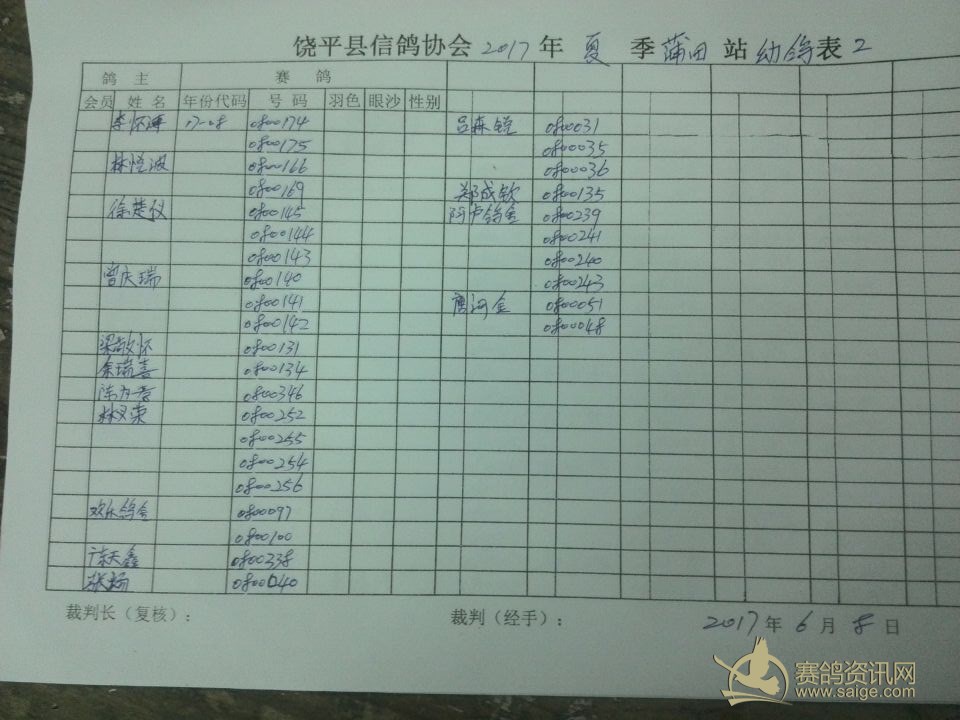 饶平县信鸽协会 2017 年 夏 季 莆田 站 幼鸽 表 2
鸽 主 赛 鸽
会员 姓 名 年份代码 号 码 羽色 眼沙 性别
李怀 17-08 0800174 吕森 0800031
0800175 0800035
林 波 0800166 0800036
0800169 郑成钦 0800135
徐楚仪 0800145 阿卢鸽舍 0800239
0800144 0800241
0800143 0800240
曾庆瑞 0800140 0800243
0800141 唐河金 0800051
0800142 0800048
梁敬怀 0800131
余瑞喜 0800134
陈 0800346
林汉荣 0800252
0800255
0800254
0800256
欢乐鸽舍 0800097
0800100
天鑫 0800338
张扬 0800040
裁判长（复核）： 裁判（经手）： 2017 年 6 月 8 日
赛鸽资讯网
www.saige.com